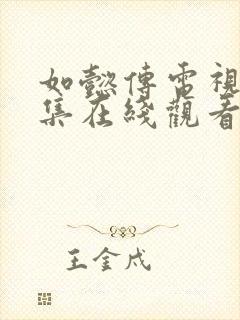 如懿傳電視
集在綫觀看
王金戍